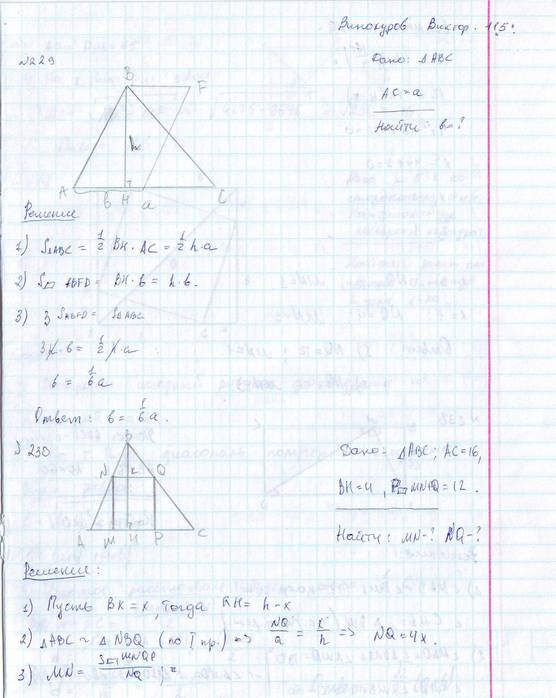 Винокуров Виктор. 115.
№229
Дано: △ABC
AC=a
Найти: b-?
B F
h
A b H a C
Решение
1) S△ABC = 1/2 BH · AC = 1/2 h·a
2) S▱ ABFD = BH·b = h·b.
3) 3 SABFD = S△ABC
3h·b = 1/2 h·a
b = 1/6 a
Ответ: b = 1/6 a.
230
Дано: △ABC; AC=16,
BH=4, P▭MNPQ=12.
Найти: MN-? NQ-?
B
N K Q
A M H P C
Решение:
1) Пусть BK = x, тогда KH = h-x
2) △ABC ~ △NBQ (по I пр.) => NQ/a = x/h => NQ=4x.
3) MN = S▭MNQP/NQ =